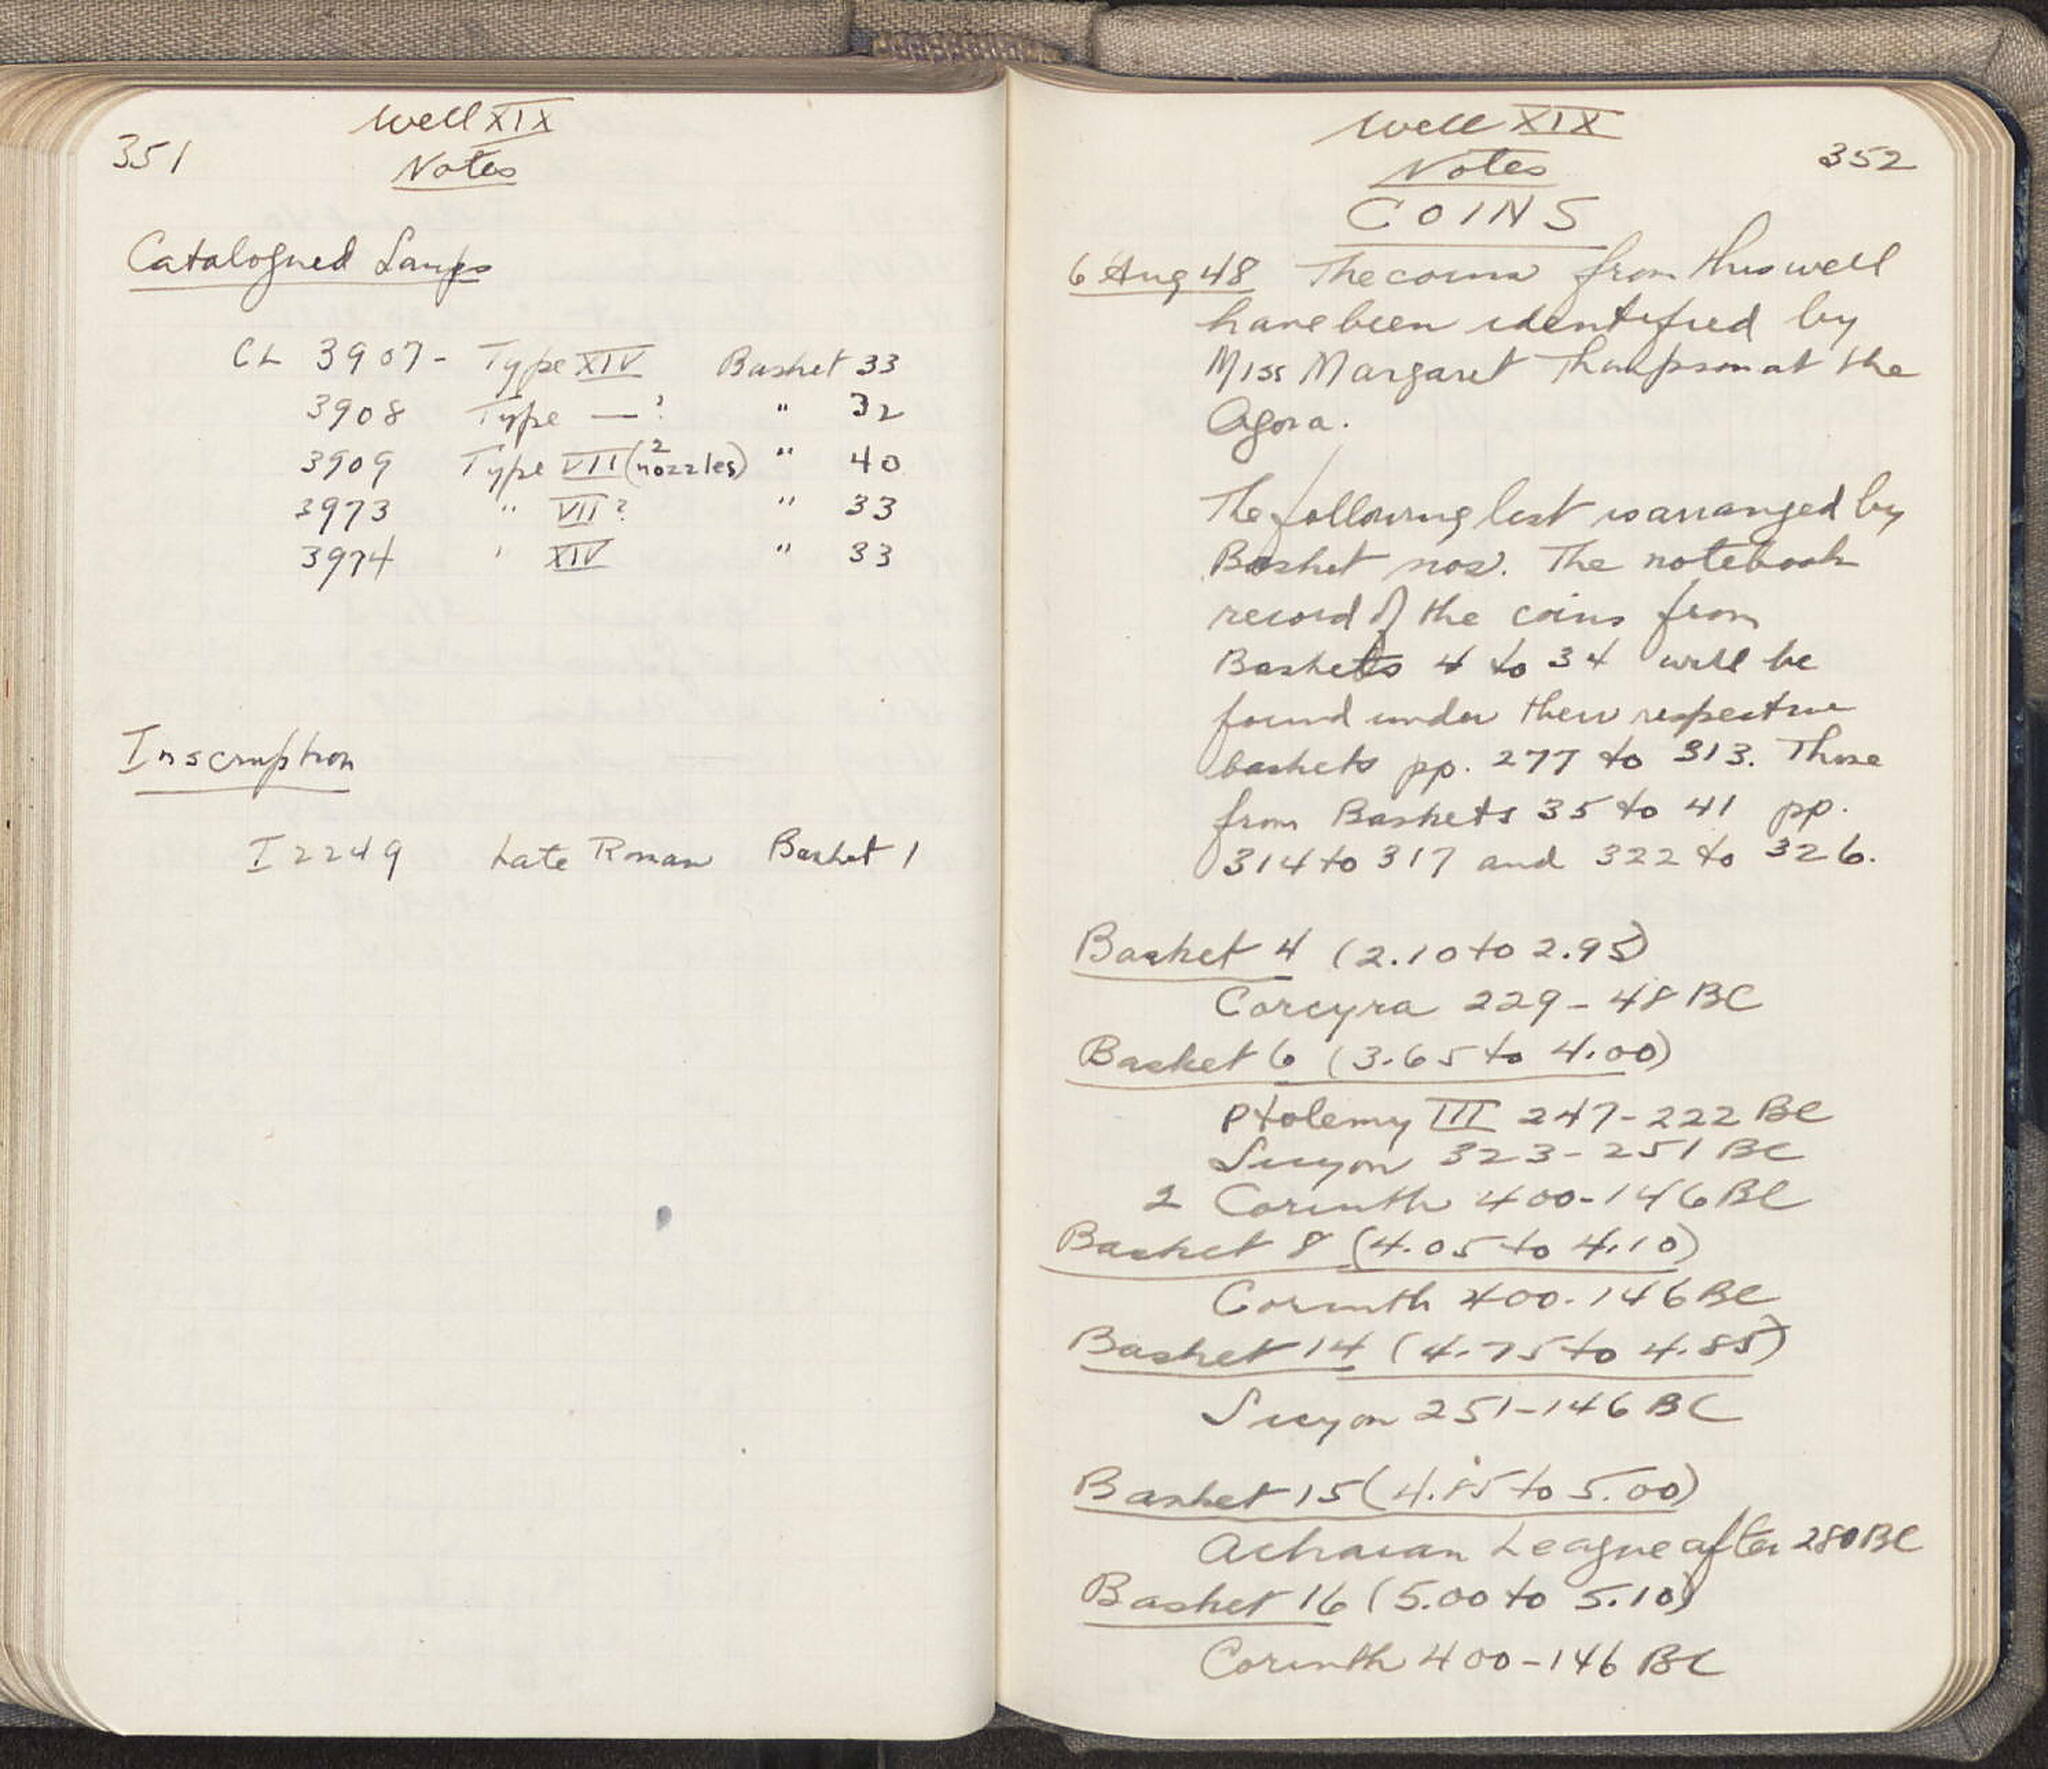 351
Well XIX
Notes
Catalogued Lamps
CL 3907 - Type XIV Basket 33
3908 Type — ? " 32
3909 Type VII (2 nozzles) " 40
3973 " VII ? " 33
3974 " XIV " 33
Inscription
I 2249 Late Roman Basket 1
Well XIX
352
Notes
COINS
6 Aug 48 The coins from this well
have been identified by
Miss Margaret Thompson at the
Agora.
The following list is arranged by
Basket nos. The notebook
record of the coins from
Baskets 4 to 34 will be
found under their respective
baskets pp. 277 to 313. Those
from Baskets 35 to 41 pp.
314 to 317 and 322 to 326.
Basket 4 (2.10 to 2.95)
Corcyra 229 - 48 BC
Basket 6 (3.65 to 4.00)
Ptolemy III 247-222 BC
Sicyon 323-251 BC
2 Corinth 400-146 BC
Basket 8 (4.05 to 4.10)
Corinth 400-146 BC
Basket 14 (4.75 to 4.85)
Sicyon 251-146 BC
Basket 15 (4.85 to 5.00)
Achaian League after 280 BC
Basket 16 (5.00 to 5.10)
Corinth 400-146 BC